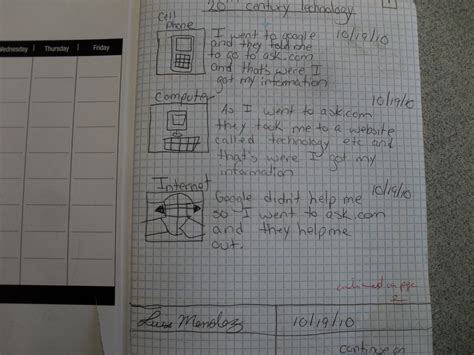 Wednesday Thursday Friday
20th century technology
1
Cell
Phone
10/19/10
I went to google
and they told me
to go to ask.com
and thats were I
got my information
Computer
10/19/10
As I went to ask.com
they took me to a website
called technology etc and
that's were I got my
information
Internet
10/19/10
Google didn't help me
so I went to ask.com
and they help me
out.
continued on page
2
Mendoza 10/19/10
continue on